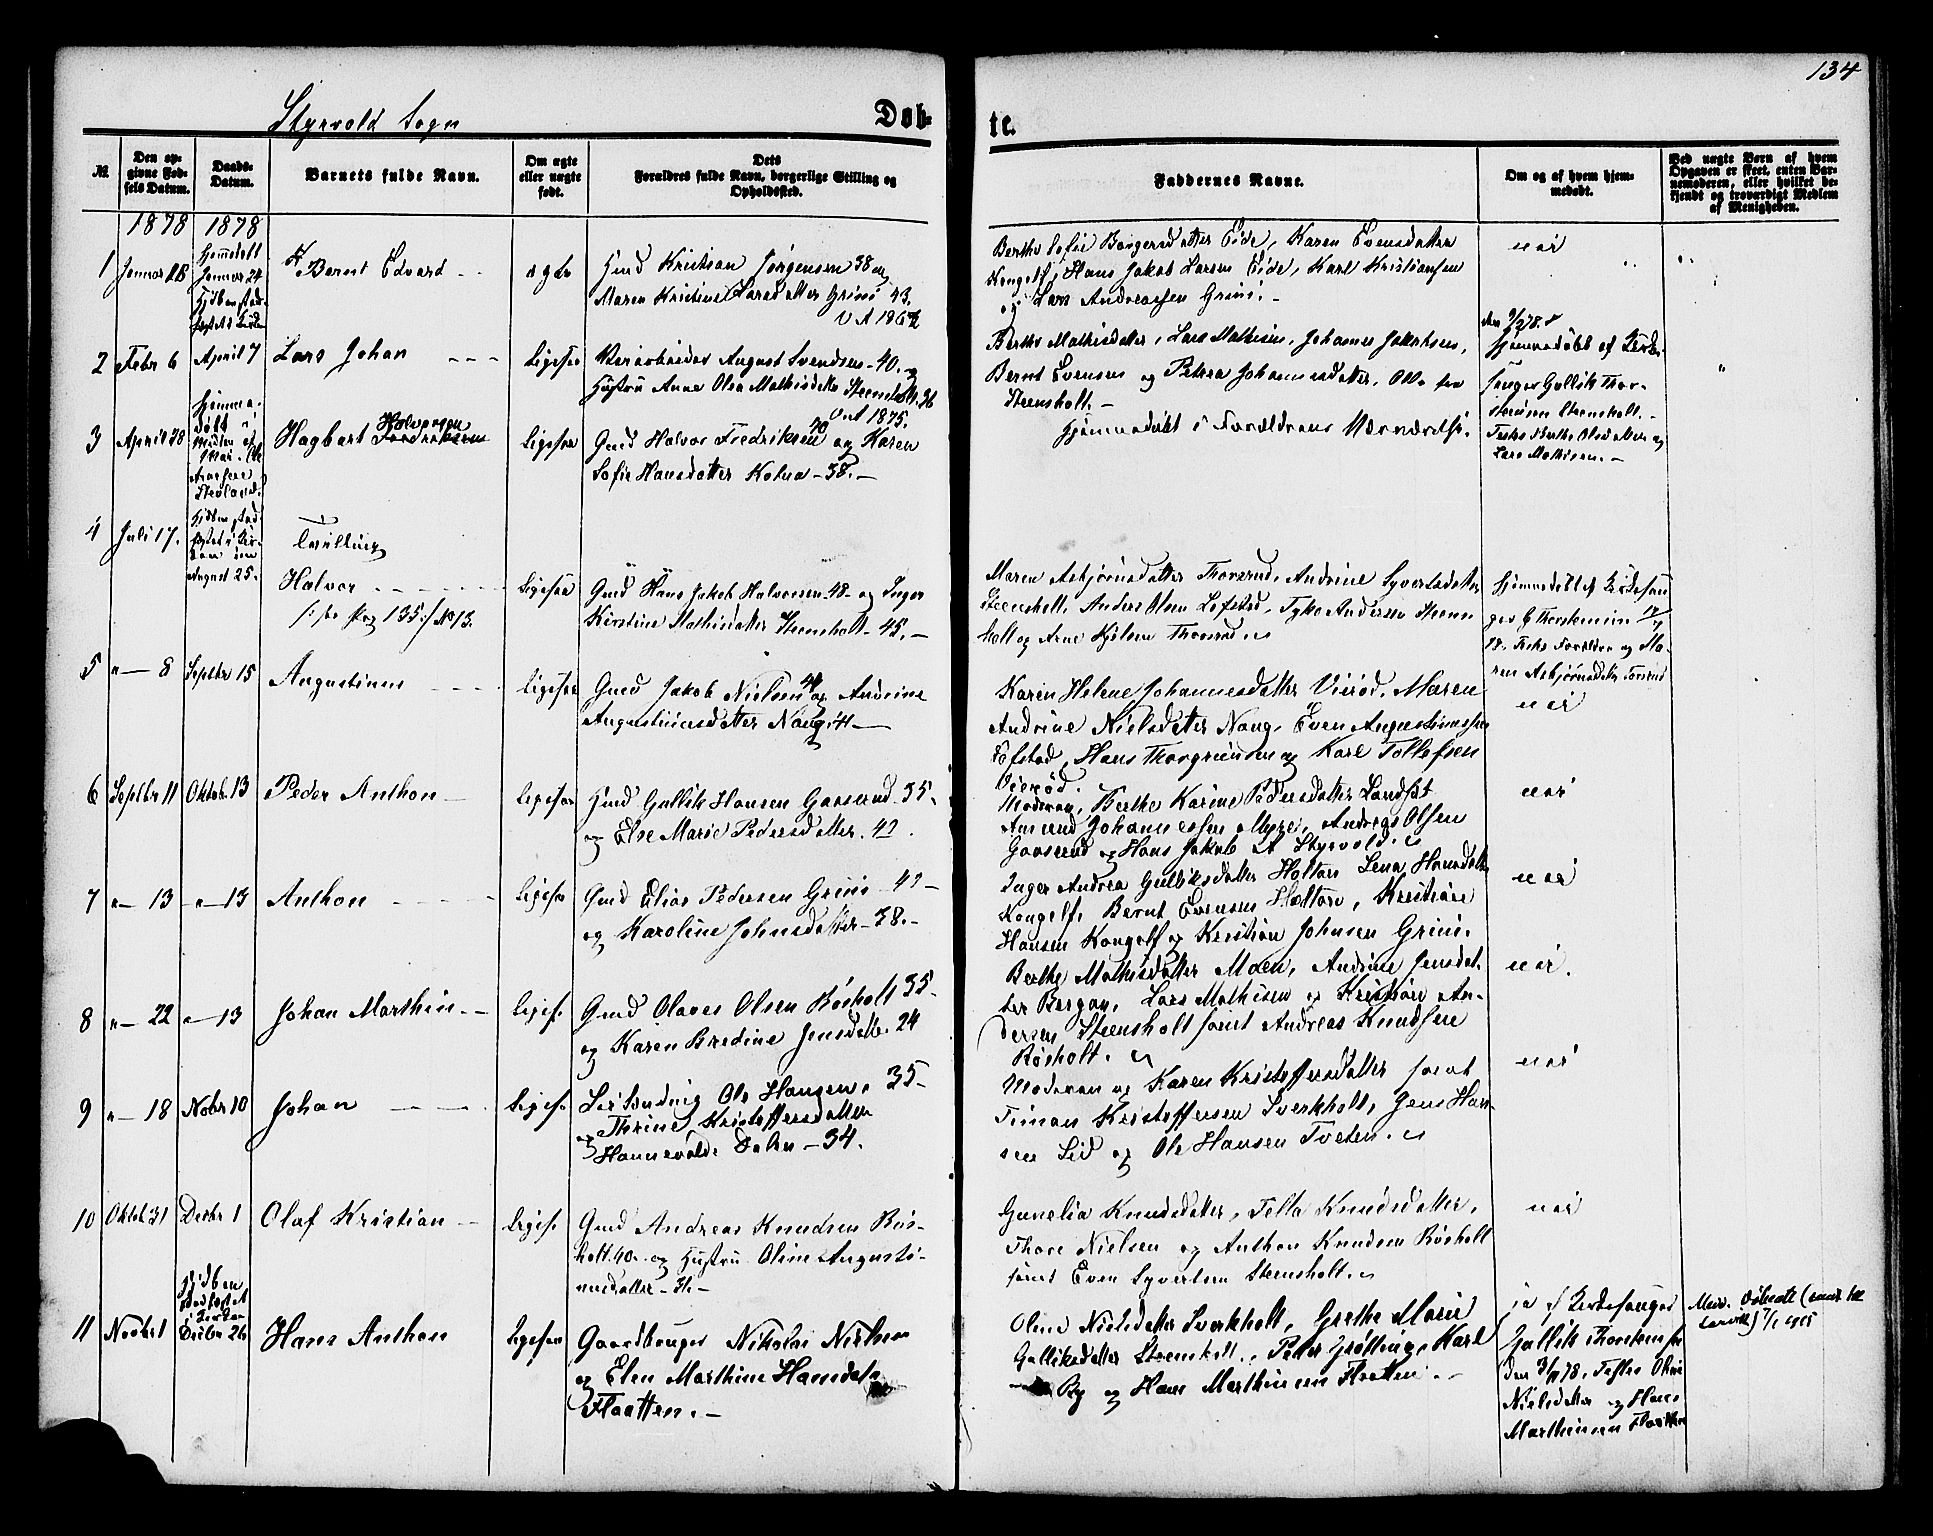 134
Styrvold Sogn
Døb-
te.
№
Den op-
givne Fød-
sels Datum.
Daabs-
Datum.
Barnets fulde Navn.
Om ægte
eller uægte
født.
Dets
Forældres fulde Navn, borgerlige Stilling og
Opholdssted.
Faddernes Navne.
Om og af hvem hjem-
medøbt.
Ved uægte Børn af hvem
Opgaven er skeet, enten Bar-
nemoderen, eller hvilket be-
kjendt og troværdigt Medlem
af Menigheden.
1878 1878
1 Januar 28
Januar 24
Bernt Edvard
ægte
Gmd Kristian Jørgensen 38 og
Maren Kristine Larsdatter Grini 43.
Berthe Sofie Borgersdatter Eide, Karen Evensdatter
Kongelf, Hans Jakob Larsen Eide, Karl Kristiansen
og Lars Andreassen Grini.
nei
2 Febr 6 April 7 Lars Johan
Ligesaa
August Svendsen 40. og
Hustru Anne Olea Mathisdatter Steensholt. 36
V A 1875.
Berthe Mathisdatter, Lars Mathisen, Johannes Jakobsen,
Bernt Evensen og Petrea Johannesdatter, Alle fra
Steensholt.
Hjemmedøbt af Kirke-
sanger Gullik Thor-
stensen Steensholt.
Berthe Olsdatter og
Lars Mathisen.
3 April 28
Hjemme-
døbt
Hagbart Halvorsen
Fredriksen
Ligesaa
Gmd Halvor Fredriksen 40 og Karen
Sofie Hansdatter Kolua 38.
Hjemmedøbt i Forældrenes Nærværelse.
4 Juli 17.
August 25.
Tvilling
Halvor
135 No 13.
Ligesaa
Gmd Hans Jakob Halvorsen 48 og Inger
Kirstine Mathisdatter Steensholt 45.
Maren Asbjørnsdatter Thorsrud, Andrine Syvertsdatter
Steensholt, Anders Olsen Lofstad, Tyke Andersen Steens
holt og Arne Kjølsen Thorsrud
Hjemmedøbt af Kirkesan
ger G Thorstensen 17/7
78. Forældre og Ma-
ren Asbjørnsdatter Torsrud
5 " 8 Septbr 15 Augustinus
Ligesaa
Gmd Jakob Nielsen 41 og Andrine
Augustinusdatter Nang. 41
Karen Helene Johannesdatter Vierød, Maren
Andrine Nielsdatter Nang, Even Augustinussen
Lofstad, Hans Thorgrimsen og Karl Tollefsen
Vierød.
nei
6 Septbr 11 Oktob. 13 Peder Anthon
Ligesaa
Gmd Gullik Hansen Gaaserud 35.
og Else Marie Pedersdatter. 42.
Moderen, Berthe Karine Pedersdatter Landsæt
Amund Johannessen Myre, Andreas Olsen
Gaaserud og Hans Jakob A Styrvold.
nei
7 " 13 " 13 Anthon
Ligesaa
Gmd Elias Pedersen Grini 42
og Karoline Johnsdatter 38.
Inger Andrea Gulliksdatter Holtan Lena Hansdatter
Kongelf, Bernt Evensen Holtan, Kristian
Hansen Kongelf og Kristian Johnsen Grini.
nei
8 " 22 " 13 Johan Marthin
Ligesaa
Gmd Olaves Olsen Røsholt 35
og Karen Bredine Jensdatter 24
Berthe Mathisdatter Moen, Andrine Jensdat-
ter Bergan, Lars Mathisen og Kristian An-
dersen Steensholt samt Andreas Knudsen
Røsholt.
nei.
9 " 18 Nobr 10 Johan
Ligesaa
Ole Hansen 35
og Thrine Kristoffersdatter
Hannevolds Dalen 34.
Moderen og Karen Kristoffersdatter samt
Simon Kristoffersen Sverkholt, Jens Han-
sen Lid og Ole Hansen Tveten.
nei
10 Oktob 31 Decbr 1 Olaf Kristian
Ligesaa
Gmd Andreas Knudsen Røs-
holt 40 og Hustru Oline Augusti-
nusdatter 31.
Gunelia Knudsdatter, Tella Knudsdatter,
Thore Nielsen og Anthon Knudsen Røsholt
samt Even Syvertsen Steensholt.
nei
11 Novbr 1
Decbr 26
Hans Anthon
Ligesaa
Gaardbruger Nikolai Nielsen
og Elen Marthine Hansdatter
Flaatten.
Oline Nielsdatter Sverkholt, Grethe Marie
Gulliksdatter Steensholt, Peder Grøtting, Karl
Ry og Hans Marthinsen Flaatten.
ja af Kirkesanger
Gullik Thorstensen
den 3/11 78. Oline
Nielsdatter og Hans
Marthinsen Flaatten